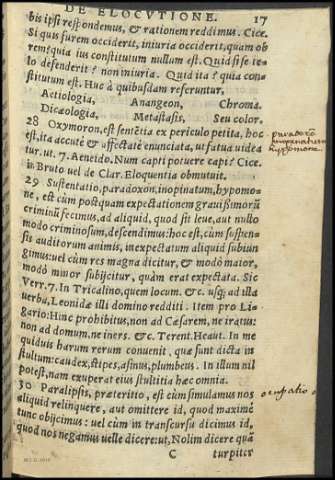 DE ELOCVTIONE. 17
bis ipsi respondemus, & rationem reddimus. Cice.
Si quis furem occiderit, iniuria occiderit, quam ob
rem? quia ius constitutum nullum est. Quid si se te-
lo defenderit? non iniuria. Quid ita? quia con-
stitutum est. Huc à quibusdam referuntur.
Aetiologia, Anangeon, Chroma.
Dicæologia, Metastasis, Seu color.
28 Oxymoron, est sentẽtia ex periculo petita, hoc
est, ita accutè & affectatè enunciata, ut fatua uidea
tur. ut. 7. Aeneido. Num capti potuere capi? Cice.
in Bruto uel de Clar. Eloquentia obmutuit.
paradoxũ
inopinatum
hypomone.
29 Sustentatio, paradoxon, inopinatum, hypomo-
ne, est cùm postquam expectationem grauissimorũ
criminũ fecimus, ad aliquid, quod sit leue, aut nullo
modo criminosum, descendimus: hoc est, cùm suspen-
sis auditorum animis, inexpectatum aliquid subiun
gimus: uel cùm res magna dicitur, & modò maior,
modò minor subijcitur, quàm erat expectata. Sic
Verr. 7. In Tricalino, quem locum. &c. usq; ad illa
uerba, Leonidæ illi domino redditi. Item pro Li-
gario: Hinc prohibitus, non ad Cæsarem, ne iratus:
non ad domum, ne iners. &c. Terent. Heaut. In me
quiduis harum rerum conuenit, quæ sunt dicta in
stultum: caudex, stipes, asinus, plumbeus. In illum nil
potest, nam exuperat eius stultitia hæc omnia.
30 Paralipsis, præteritio, est cùm simulamus nos
occupatio
aliquid relinquere, aut omittere id, quod maximè
tunc obijcimus: uel cùm in transcursu dicimus id,
quod nos negamus uelle dicere: ut, Nolim dicere quã
C turpiter